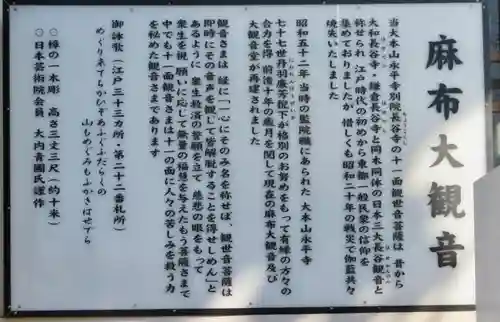 麻布大観音
当大本山永平寺別院長谷寺の十一面観世音菩薩は 昔から
大和長谷寺・鎌倉長谷寺と同木同体の日本三大長谷観音と
称せられ 江戸時代の初めから東都一般民衆の信仰を
集めておりましたが 惜しくも昭和二十年の戦災で伽藍共々
焼失いたしました
昭和五十二年 当時の監院職にあられた 大本山永平寺
七十七世丹羽廉芳猊下が格別のお努めをもって有縁の方々の
合力を得 前後十年の歳月を閲して現在の麻布大観音及び
大観音堂が再建されました
観音さまは 経に「一心にそのみ名を称せば、観世音菩薩は
即時にその音声を観じて皆解脱することを得せしめん」と
あるように 衆生救済の誓願を立て 慈悲の眼をもって
衆生を視 願いに応じて無量の福慧を与えたもう菩薩さまで
中でも十一面観音さまは十一の面に人々の苦しみを救う力
を秘めた観音さまであります
御詠歌(江戸三十三か所・第二十二番札所)
めぐり来てちかひをあふぐふだらくの
山もめぐみもふかさばせでら
○樟の一木彫 高さ三丈三尺(約十米)
○日本芸術院会員 大内青圃氏謹作